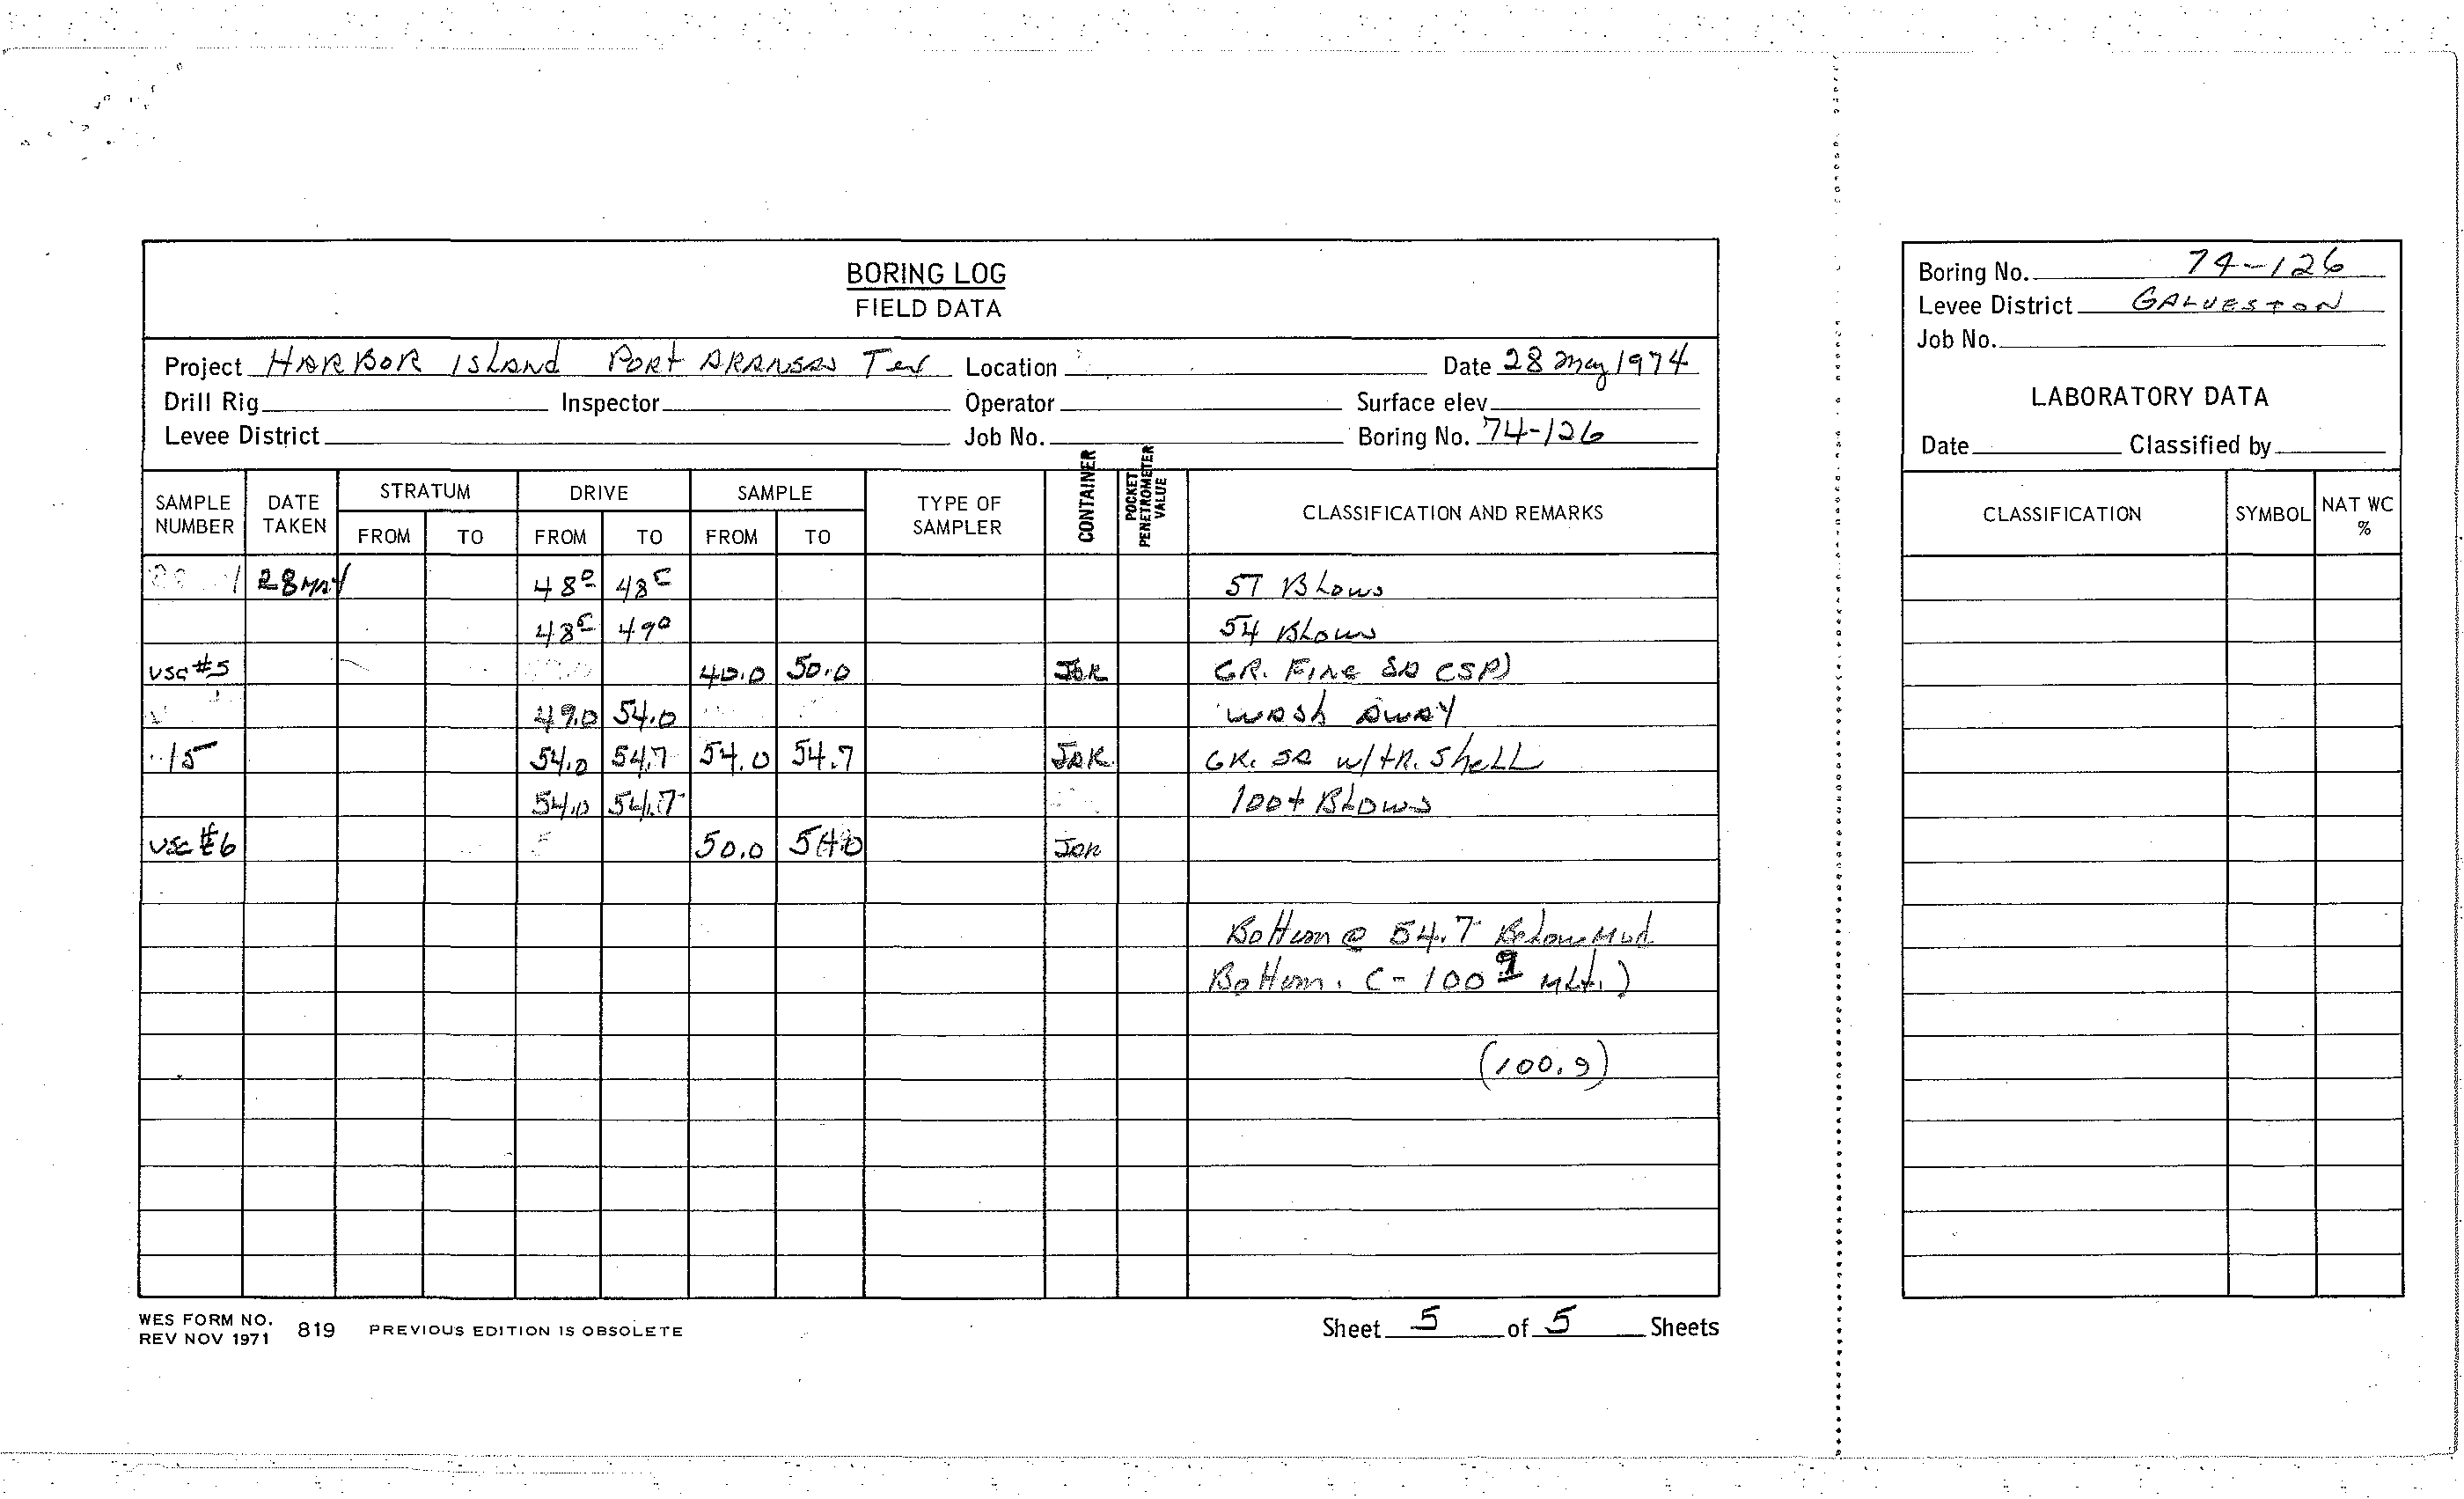 BORING LOG
FIELD DATA
Project HARBOR ISLAND PORT ARANSAS Tex Location Date 28 May 1974
Drill Rig Inspector Operator Surface elev.
Levee District Job No. Boring No. 74-126
SAMPLE NUMBER DATE TAKEN STRATUM FROM TO DRIVE FROM TO SAMPLE FROM TO TYPE OF SAMPLER CONTAINER POCKET PENETROMETER VALUE CLASSIFICATION AND REMARKS
28 MAY 48 0 48 5 57 Blows
48 5 49 0 54 Blows
VSC #5 40.0 50.0 JAR GR. FINE SA (SP)
49.0 54.0 WASH AWAY
15 54.0 54.7 54.0 54.7 JAR GR. SA w/ tR. ShELL
54.0 54.7 100+ BLOWS
VSC #6 50.0 54.0 JAR
Bottom @ 54.7 Below Mud
Bottom. (-100 9 MLt.)
(100.9)
WES FORM NO. 819 PREVIOUS EDITION IS OBSOLETE
REV NOV 1971
Sheet 5 of 5 Sheets
Boring No. 74-126
Levee District GALVESTON
Job No.
LABORATORY DATA
Date Classified by
CLASSIFICATION SYMBOL NAT WC %